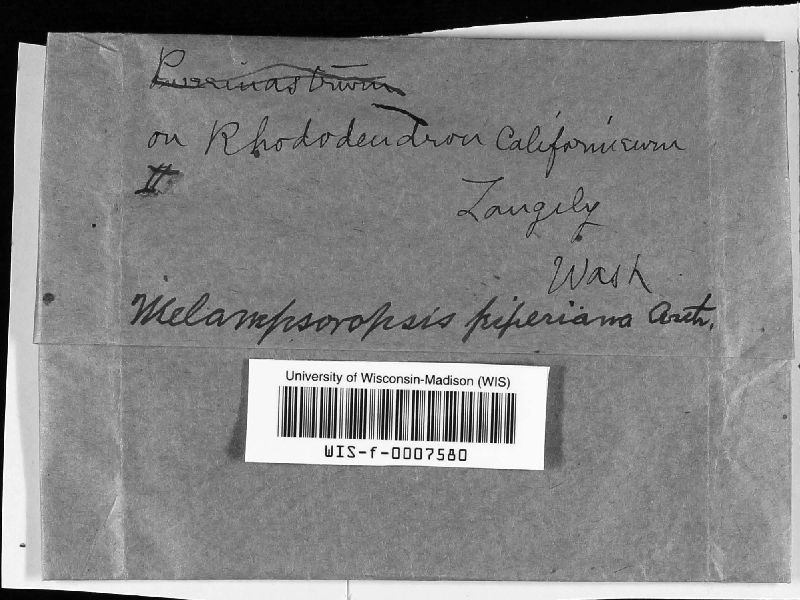 on Rhododendron Californicum
II
Langely
Wash
Melampsoropsis piperiana Arth.
University of Wisconsin-Madison (WIS)
WIS-f-0007580